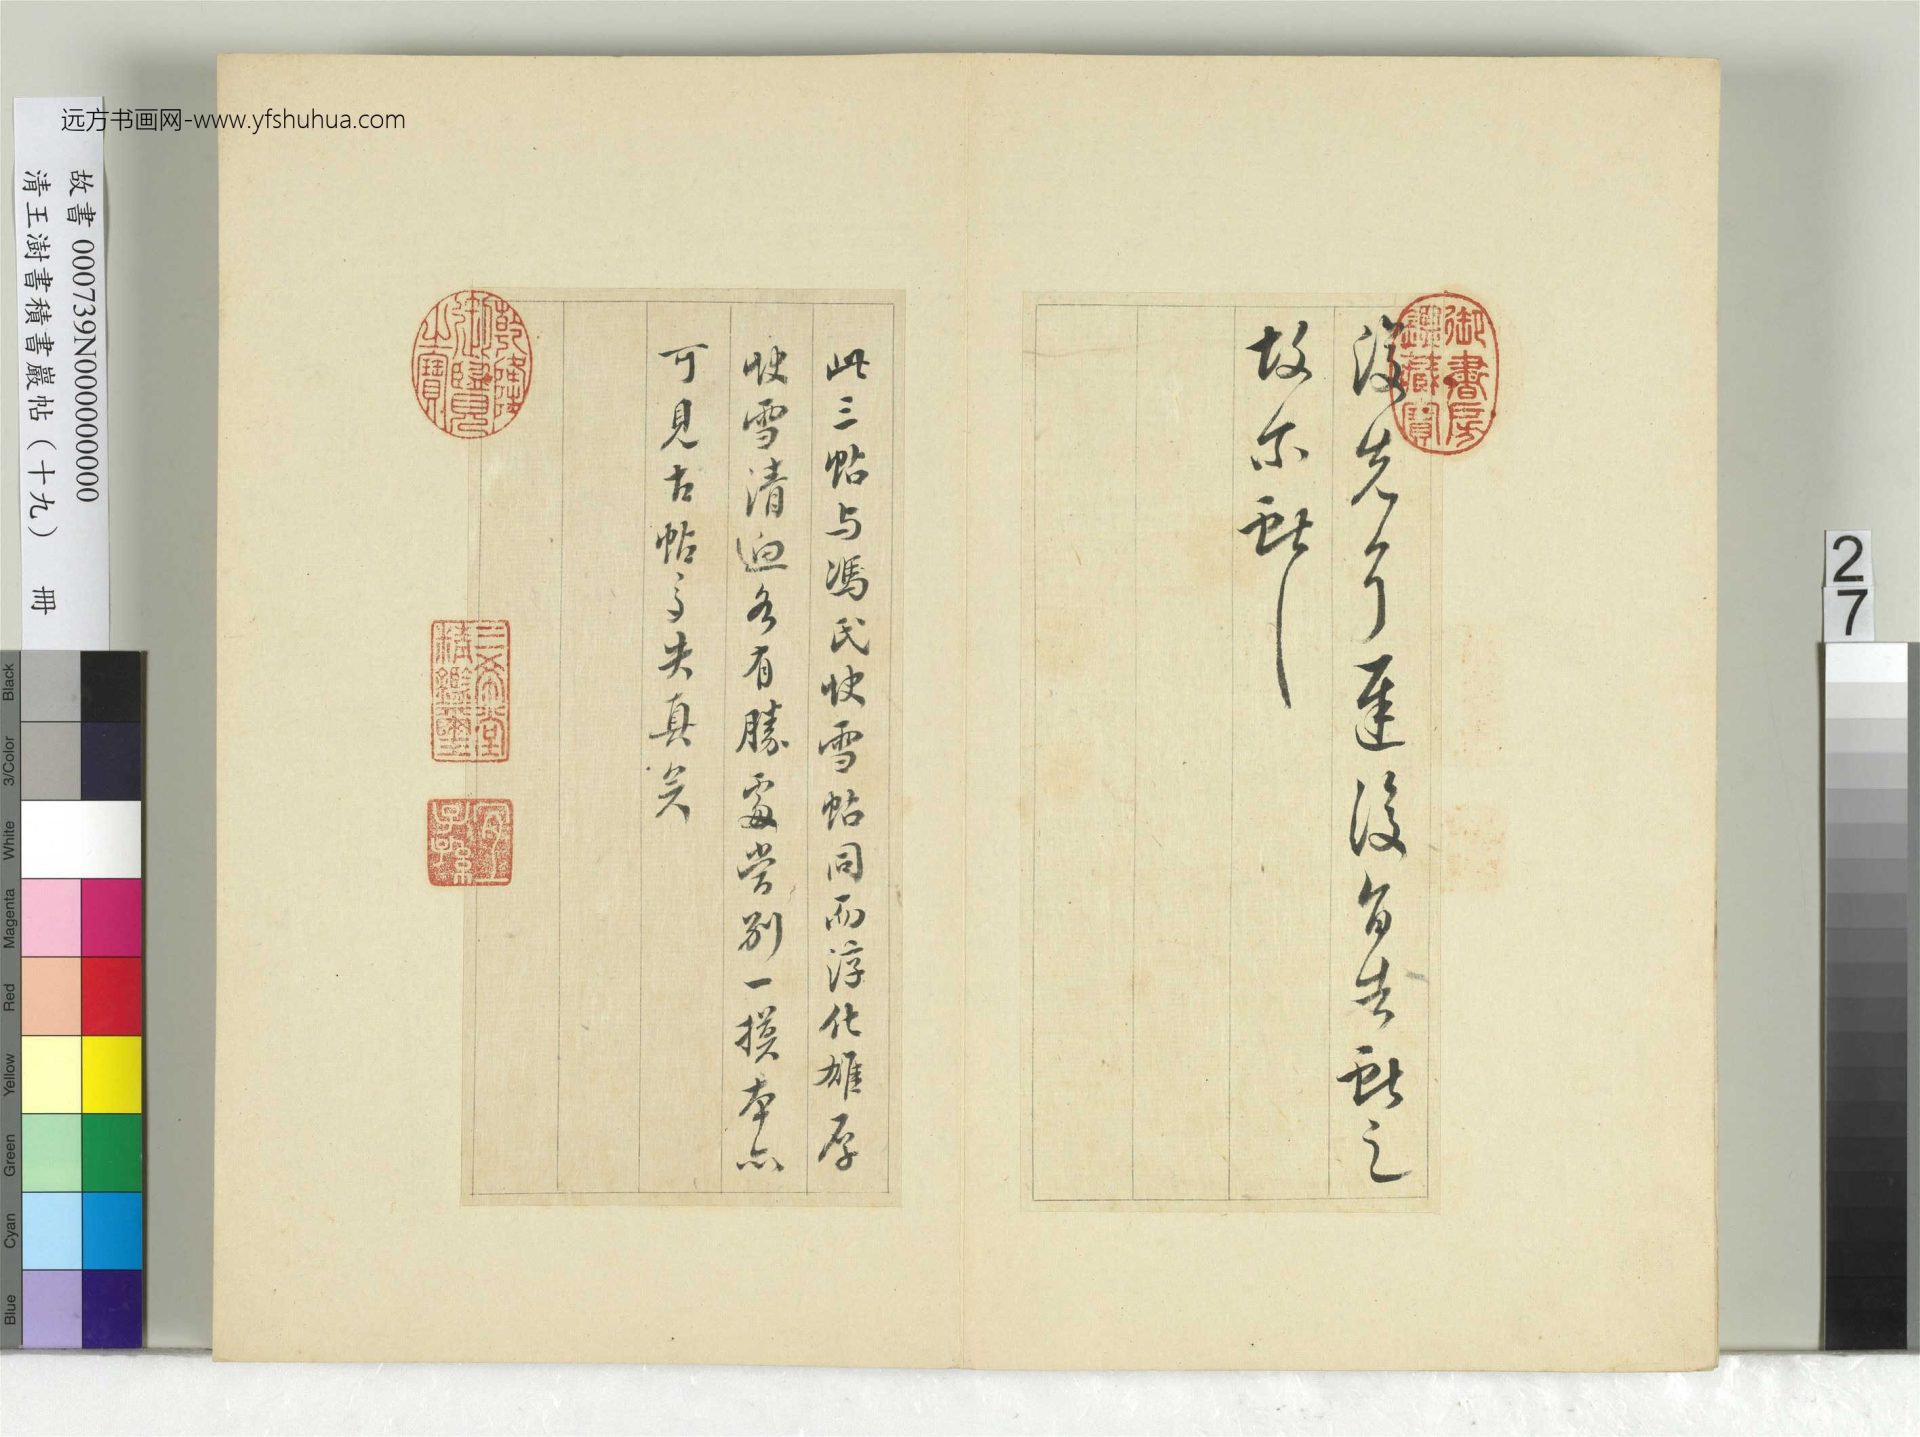 远方书画网-www.yfshuhua.com
故書 000739N000000000
清王澍書積書巖帖（十九） 冊
御書房鑑藏寶
先了遲後
故尔
此三帖与馮氏快雪帖同而淳化雄厚
快雪清逈各有勝處當別一摸本亦
可見古帖失真矣
乾隆御覽之寶
三希堂精鑑璽
宜子孫
27
Black
3/Color
White
Magenta
Red
Yellow
Green
Cyan
Blue